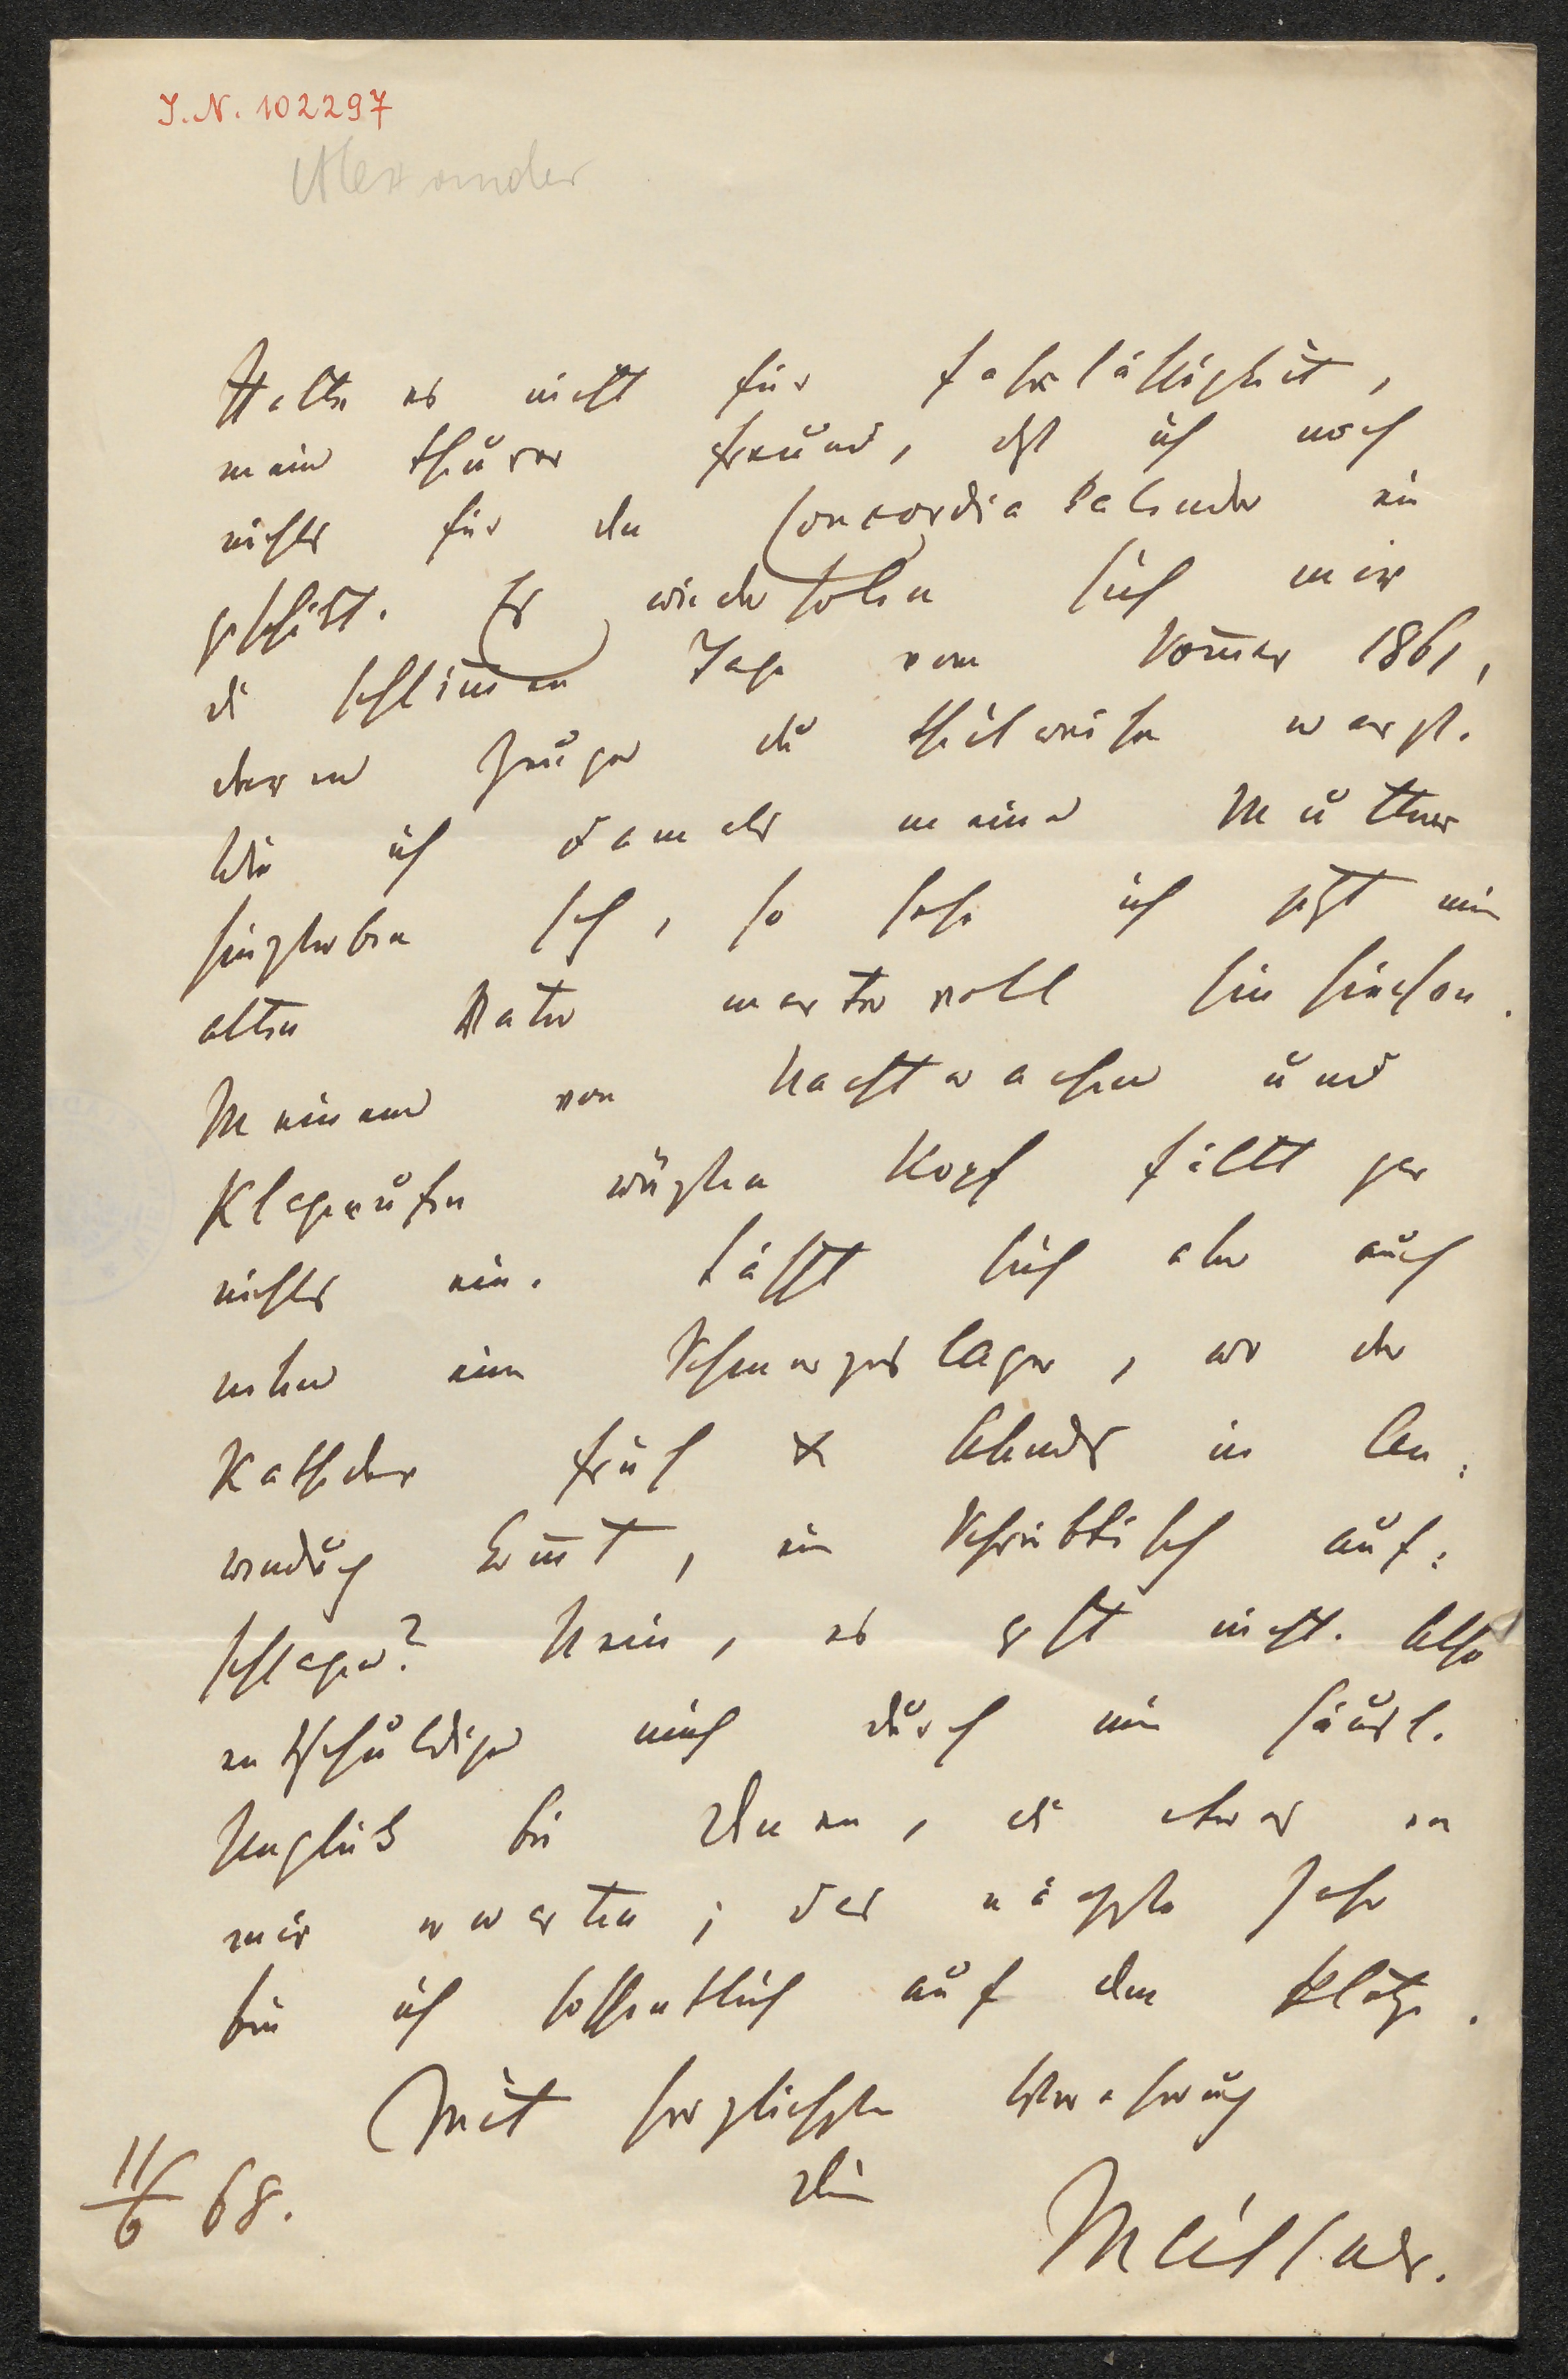 J.N. 102297
Alexander
Halte es nicht für Fahrläßigkeit,
mein theurer Freund, dßß ich noch
nichts für den Concordia Kalender ein
geschikt. Es wiederholen sich mir
die schlim̄en Tage vom Som̄er 1861,
deren Zeuge du theilweise warst.
Wie ich damals meine Mutter
hinsterben sah, so sehe ich jetzt mein
alten Vater martervoll hinsiechen.
Meinem von Nachtwachen und
Klagerufen wüsten Kopf fällt gar
nichts ein. Läßt sich aber auch
neben einem Schmerzenslager, wo der
Katheder früh & Abends in An=
wendung kom̄t, ein Schreibtisch auf=
schlagen? Nein, es geht nicht. Also
entschuldige mich durch mein häusl.
Unglück bei Denen, die etwas von
mir erwarten; das nächste Jahr
bin ich hoffentlich auf dem Platze.
Mit herzlichster Verehrung
Dein
11/6 68.
Meißner.